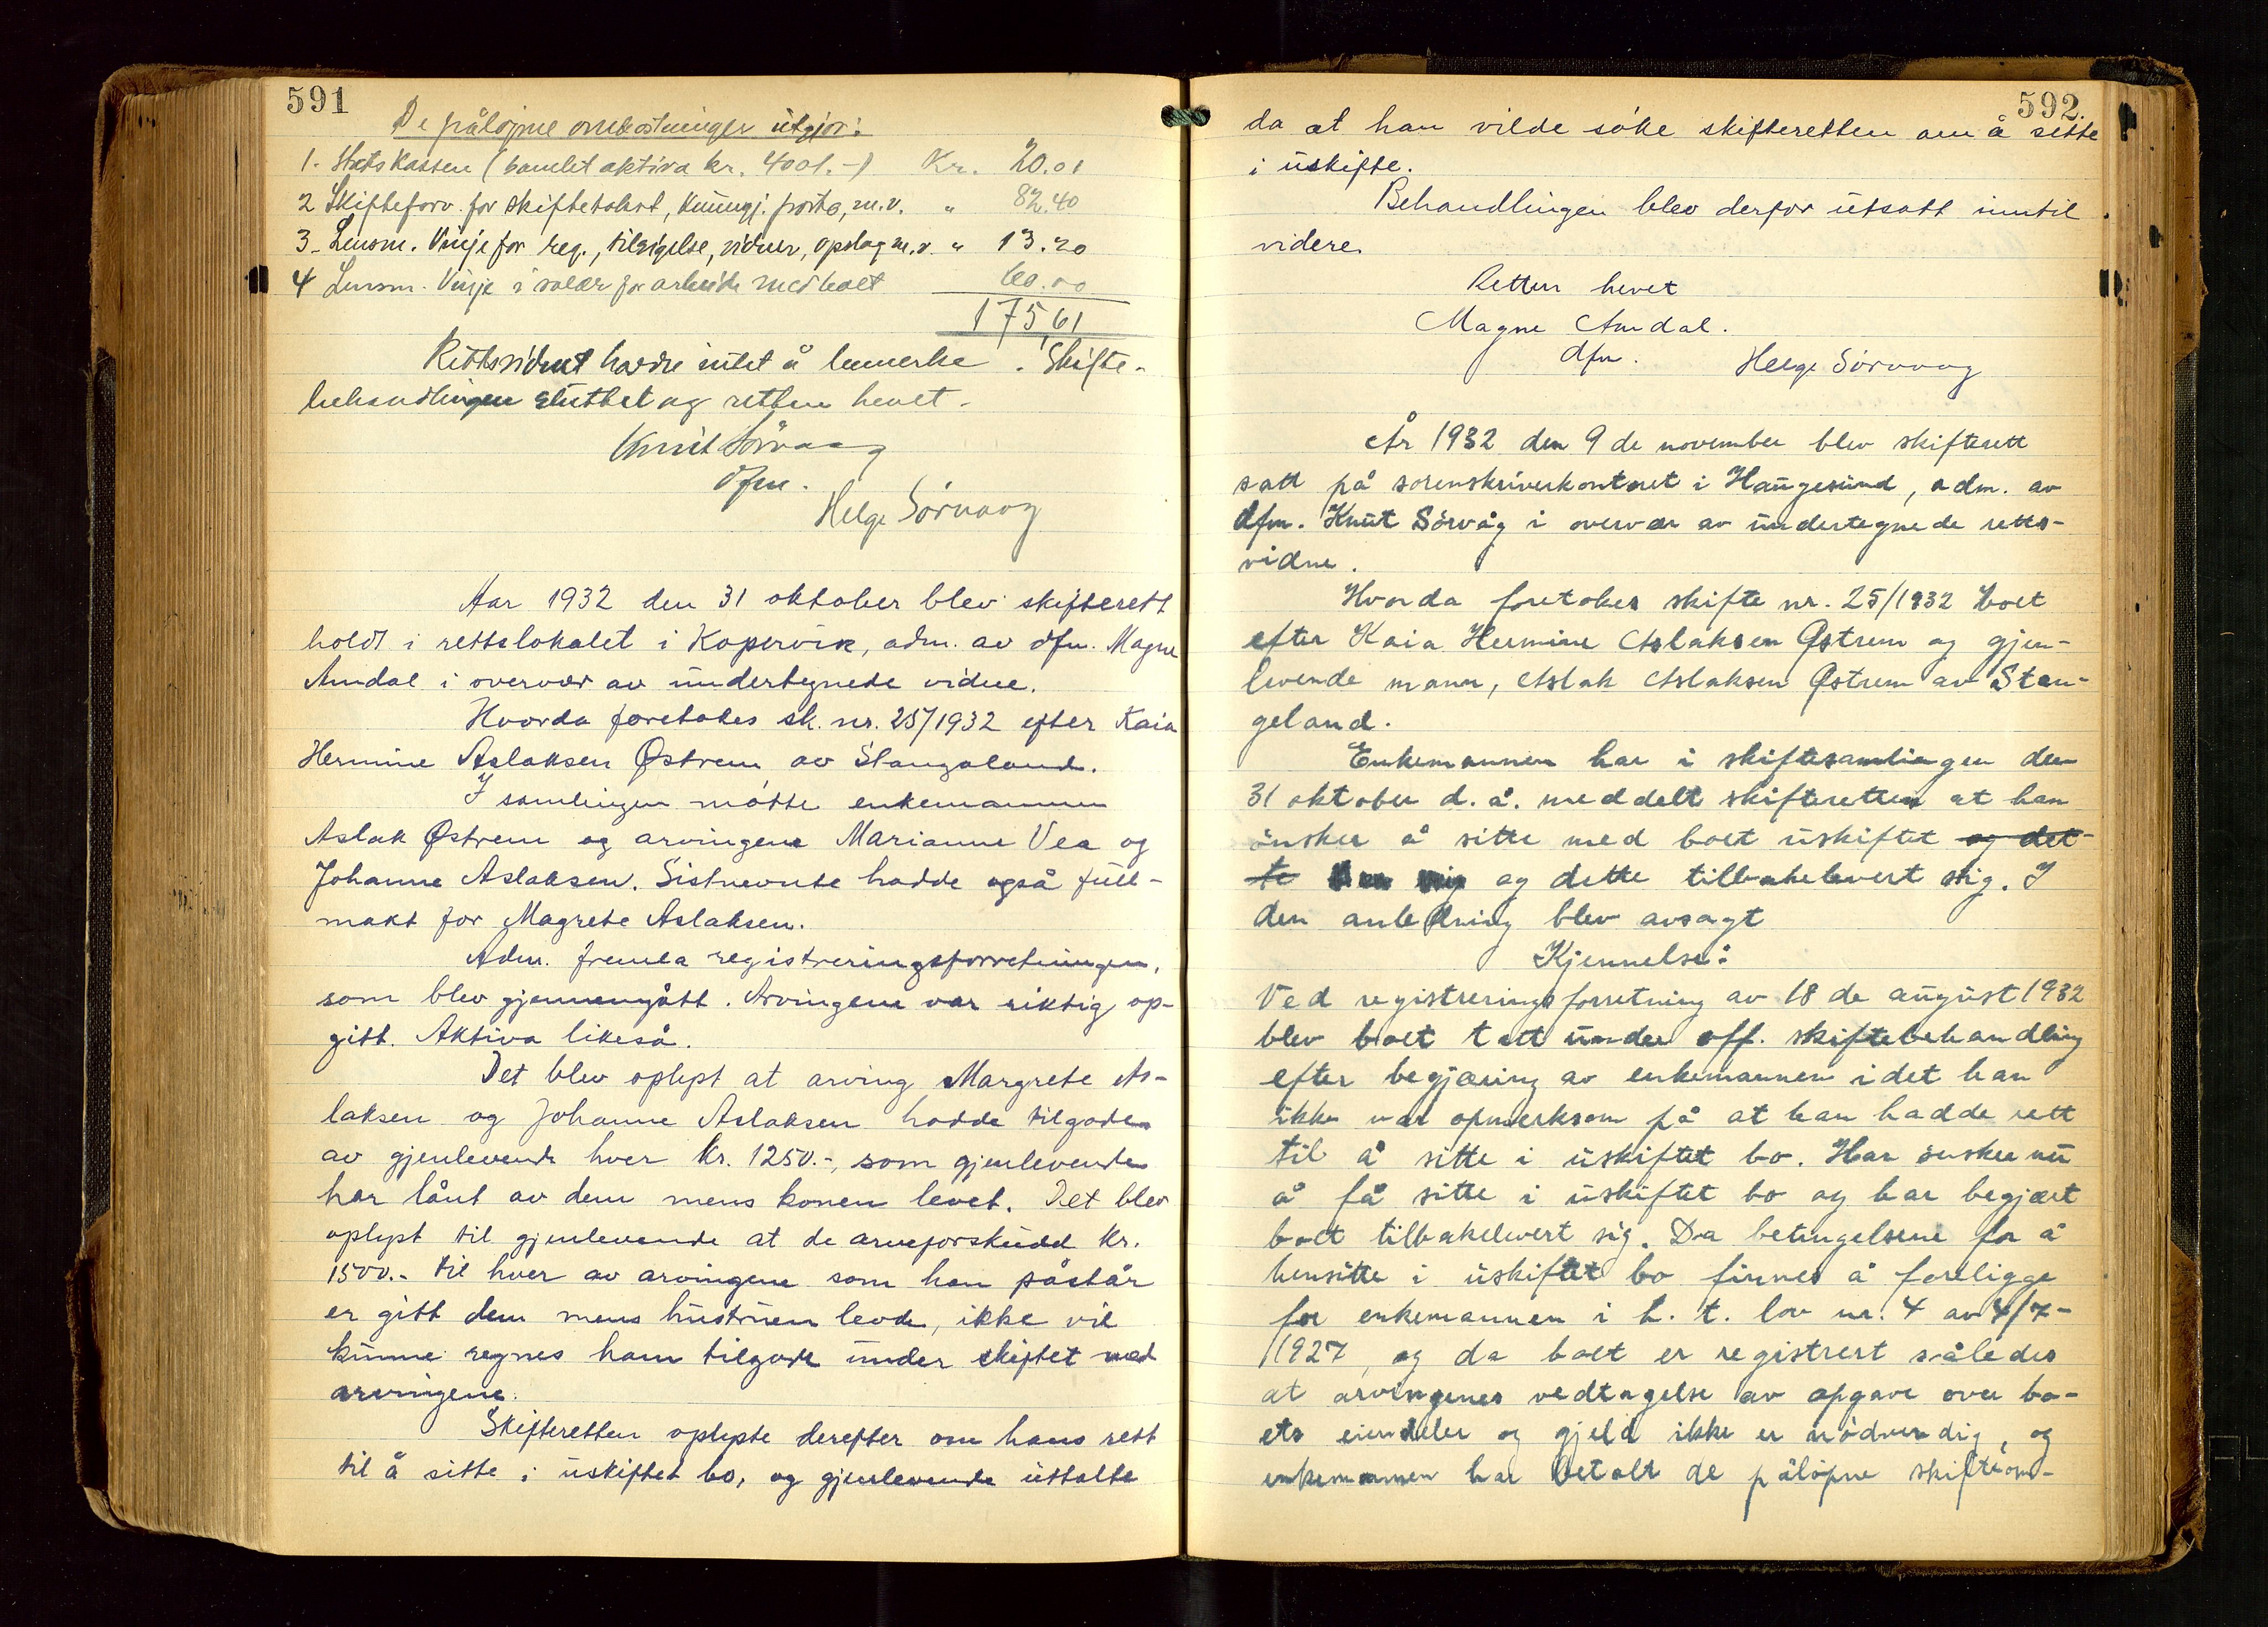 591
De påløpne omkostninger utgjør:
1. Statskassen (samlet aktiva kr. 4001.-) Kr. 20.01
2 Skifteforv. for skiftetakst, kunngj. porto, m.v. " 82.40
3. Lensm. Vinje for reg., tilsigelse, vidner, opslag m.v. " 13.20
4 Lensm. Vinje i salær for arbeide med boet 60.00
175,61
Rettsvidnet hadde intet å bemerke. Skifte-
behandlingen sluttet og retten hevet.
Knut Sørvaag
dfm.
Helge Sørvaag
Aar 1932 den 31 oktober blev skifterett
holdt i rettslokalet i Kopervik, adm. av dfm. Magne
Amdal i overvær av undertegnede vidne.
Hvorda foretokes sk. nr. 25/1932 efter Kaia
Hermine Aslaksen Østrem av Stangaland.
I samlingen møtte enkemannen
Aslak Østrem og arvingene Marianne Vea og
Johanne Aslaksen. Sistnevnte hadde også full-
makt for Magrete Aslaksen.
Adm. fremla registreringsforretningen,
som blev gjennemgått. Arvingene var riktig op-
gitt. Aktiva likeså.
Det blev oplyst at arving Margrete As-
laksen og Johanne Aslaksen hadde tilgode
av gjenlevende hver kr. 1250.-, som gjenlevende
har lånt av dem mens konen levet. Det blev
oplyst til gjenlevende at de arveforskudd kr.
1500.- til hver av arvingene som han påstår
er gitt dem mens hustruen levde, ikke vil
kunne regnes ham tilgode under skiftet med
arvingene.
Skifteretten oplyste derefter om hans rett
til å sitte i uskiftet bo, og gjenlevende uttalte
592.
da at han vilde søke skifteretten om å sitte
i uskifte.
Behandlingen blev derfor utsatt inntil
videre.
Retten hevet
Magne Amdal.
dfm. Helge Sørvaag
År 1932 den 9 de november blev skifterett
satt på sorenskriverkontoret i Haugesund, adm. av
dfm. Knut Sörvåg i overvær av undertegnede retts-
vidne.
Hvorda foretokes skifte nr. 25/1932 boet
efter Kaia Hermine Aslaksen Østrem og gjen-
levende mann, Aslak Aslaksen Østrem av Stan-
geland.
Enkemannen har i skiftesamlingen den
31 oktober d. å. meddelt skifteretten at han
ønsker å sitte med boet uskiftet og det-
te og dette tilbakelevert sig. I
den anledning blev avsagt
Kjennelse:
Ved registreringsforretning av 18 de august 1932
blev boet tatt under off. skiftebehandling
efter begjæring av enkemannen idet han
ikke var opmerksom på at han hadde rett
til å sitte i uskiftet bo. Han ønsker nu
å få sitte i uskiftet bo og har begjært
boet tilbakelevert sig. Da betingelsene for å
hensitte i uskiftet bo finnes å foreligge
for enkemannen i h. t. lov nr. 4 av 4/7-
1927, og da boet er registrert således
at arvingenes vedtagelse av opgave over bo-
ets eiendeler og gjeld ikke er nødvendig, og
enkemannen har betalt de påløpne skifteom-